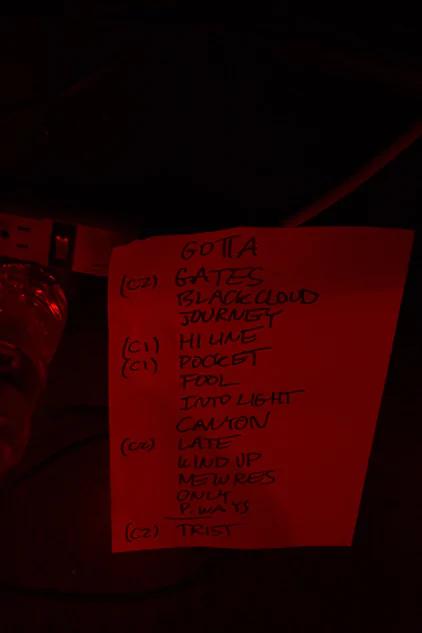 GOTTA
(C2) GATES
BLACKCLOUD
JOURNEY
(C1) HI LINE
(C1) POCKET
FOOL
INTO LIGHT
CANYON
(C2) LATE
WIND UP
NEW RES
ONLY
P. WAYS
(C2) TRIST